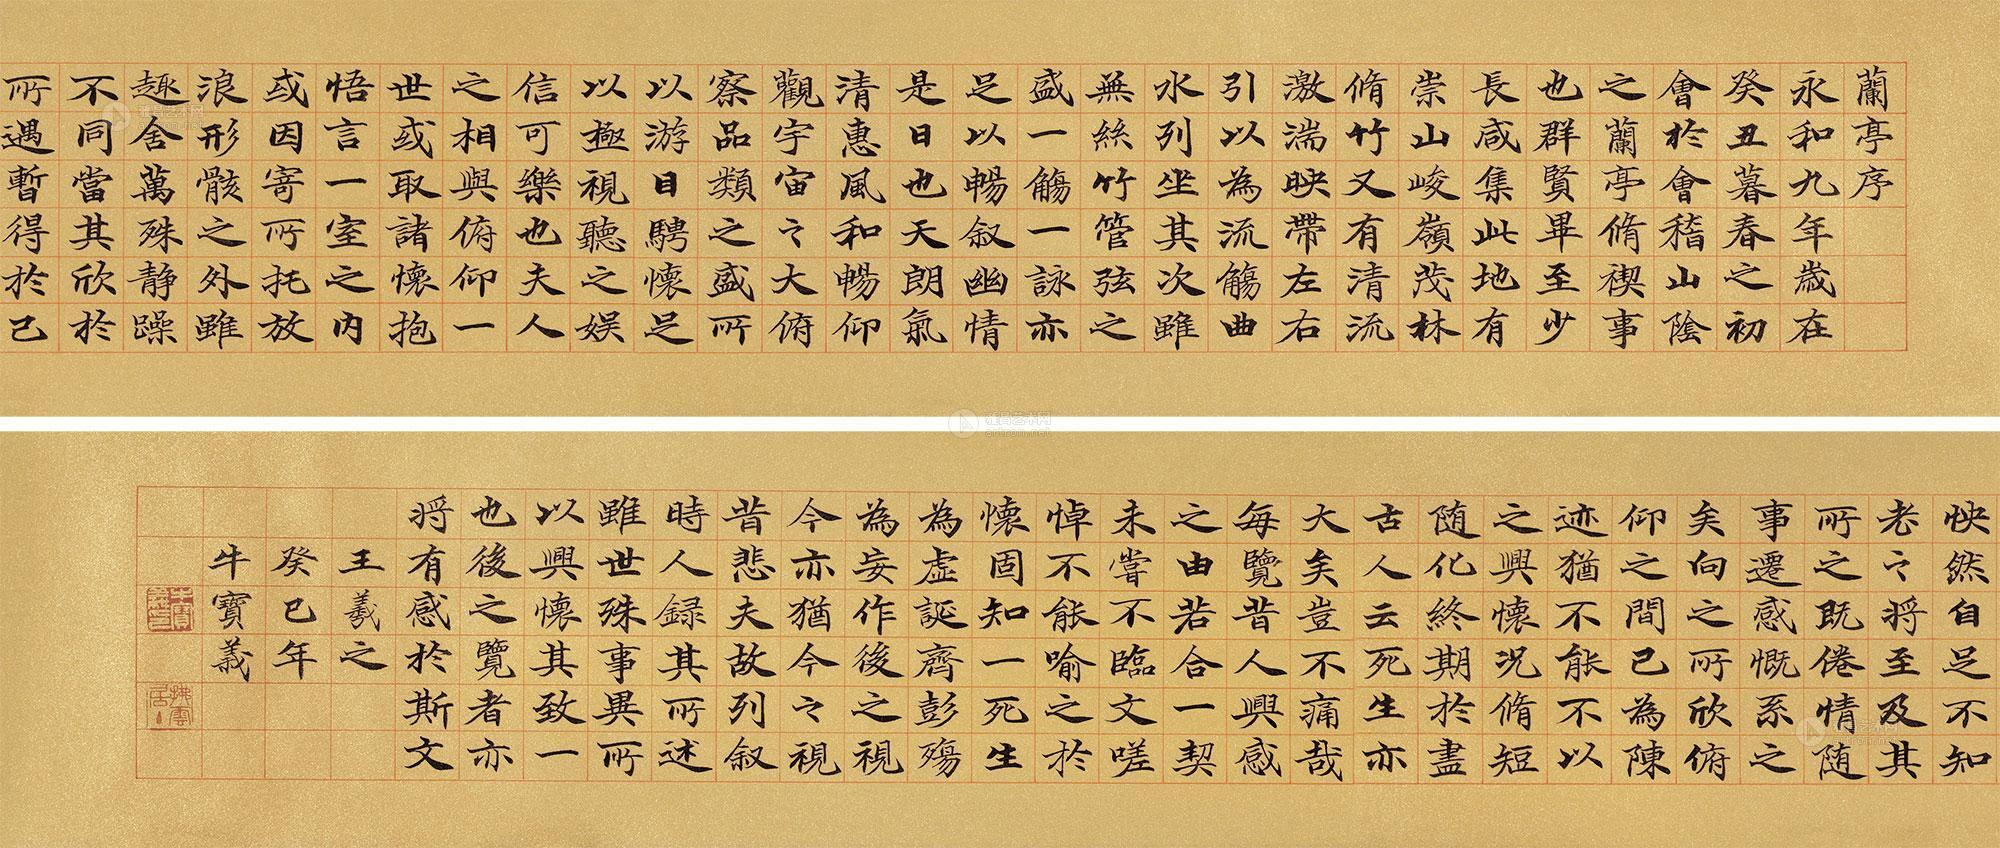 蘭亭序
永和九年歲在
癸丑暮春之初
會於會稽山陰
之蘭亭脩禊事
也群賢畢至少
長咸集此地有
崇山峻嶺茂林
脩竹又有清流
激湍映帶左右
引以為流觴曲
水列坐其次雖
無絲竹管弦之
盛一觴一詠亦
足以暢叙幽情
是日也天朗氣
清惠風和暢仰
觀宇宙之大俯
察品類之盛所
以游目騁懷足
以極視聽之娱
信可樂也夫人
之相與俯仰一
世或取諸懷抱
悟言一室之内
或因寄所托放
浪形骸之外雖
趣舍萬殊静躁
不同當其欣於
所遇暫得於己
怏然自足不知
老之將至及其
所之既倦情随
事遷感慨系之
矣向之所欣俯
仰之間已為陳
迹猶不能不以
之興懷况脩短
随化終期於盡
古人云死生亦
大矣豈不痛哉
每覽昔人興感
之由若合一契
未嘗不臨文嗟
悼不能喻之於
懷固知一死生
為虚誕齊彭殤
為妄作後之視
今亦猶今之視
昔悲夫故列叙
時人録其所述
雖世殊事異所
以興懷其致一
也後之覽者亦
將有感於斯文
王羲之
癸巳年
牛寶義
牛寶義印
雅昌艺术网
artron.net